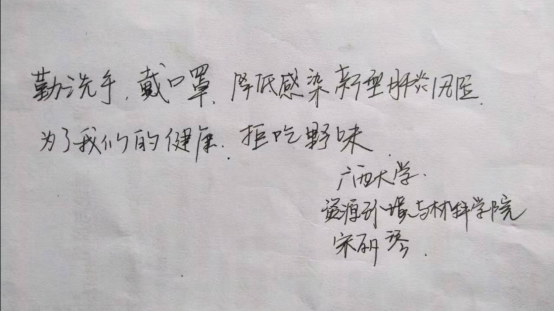 勤洗手,戴口罩,降低感染新型肺炎风险.
为了我们的健康,拒吃野味
广西大学.
资源环境与材料学院
宋研琴.